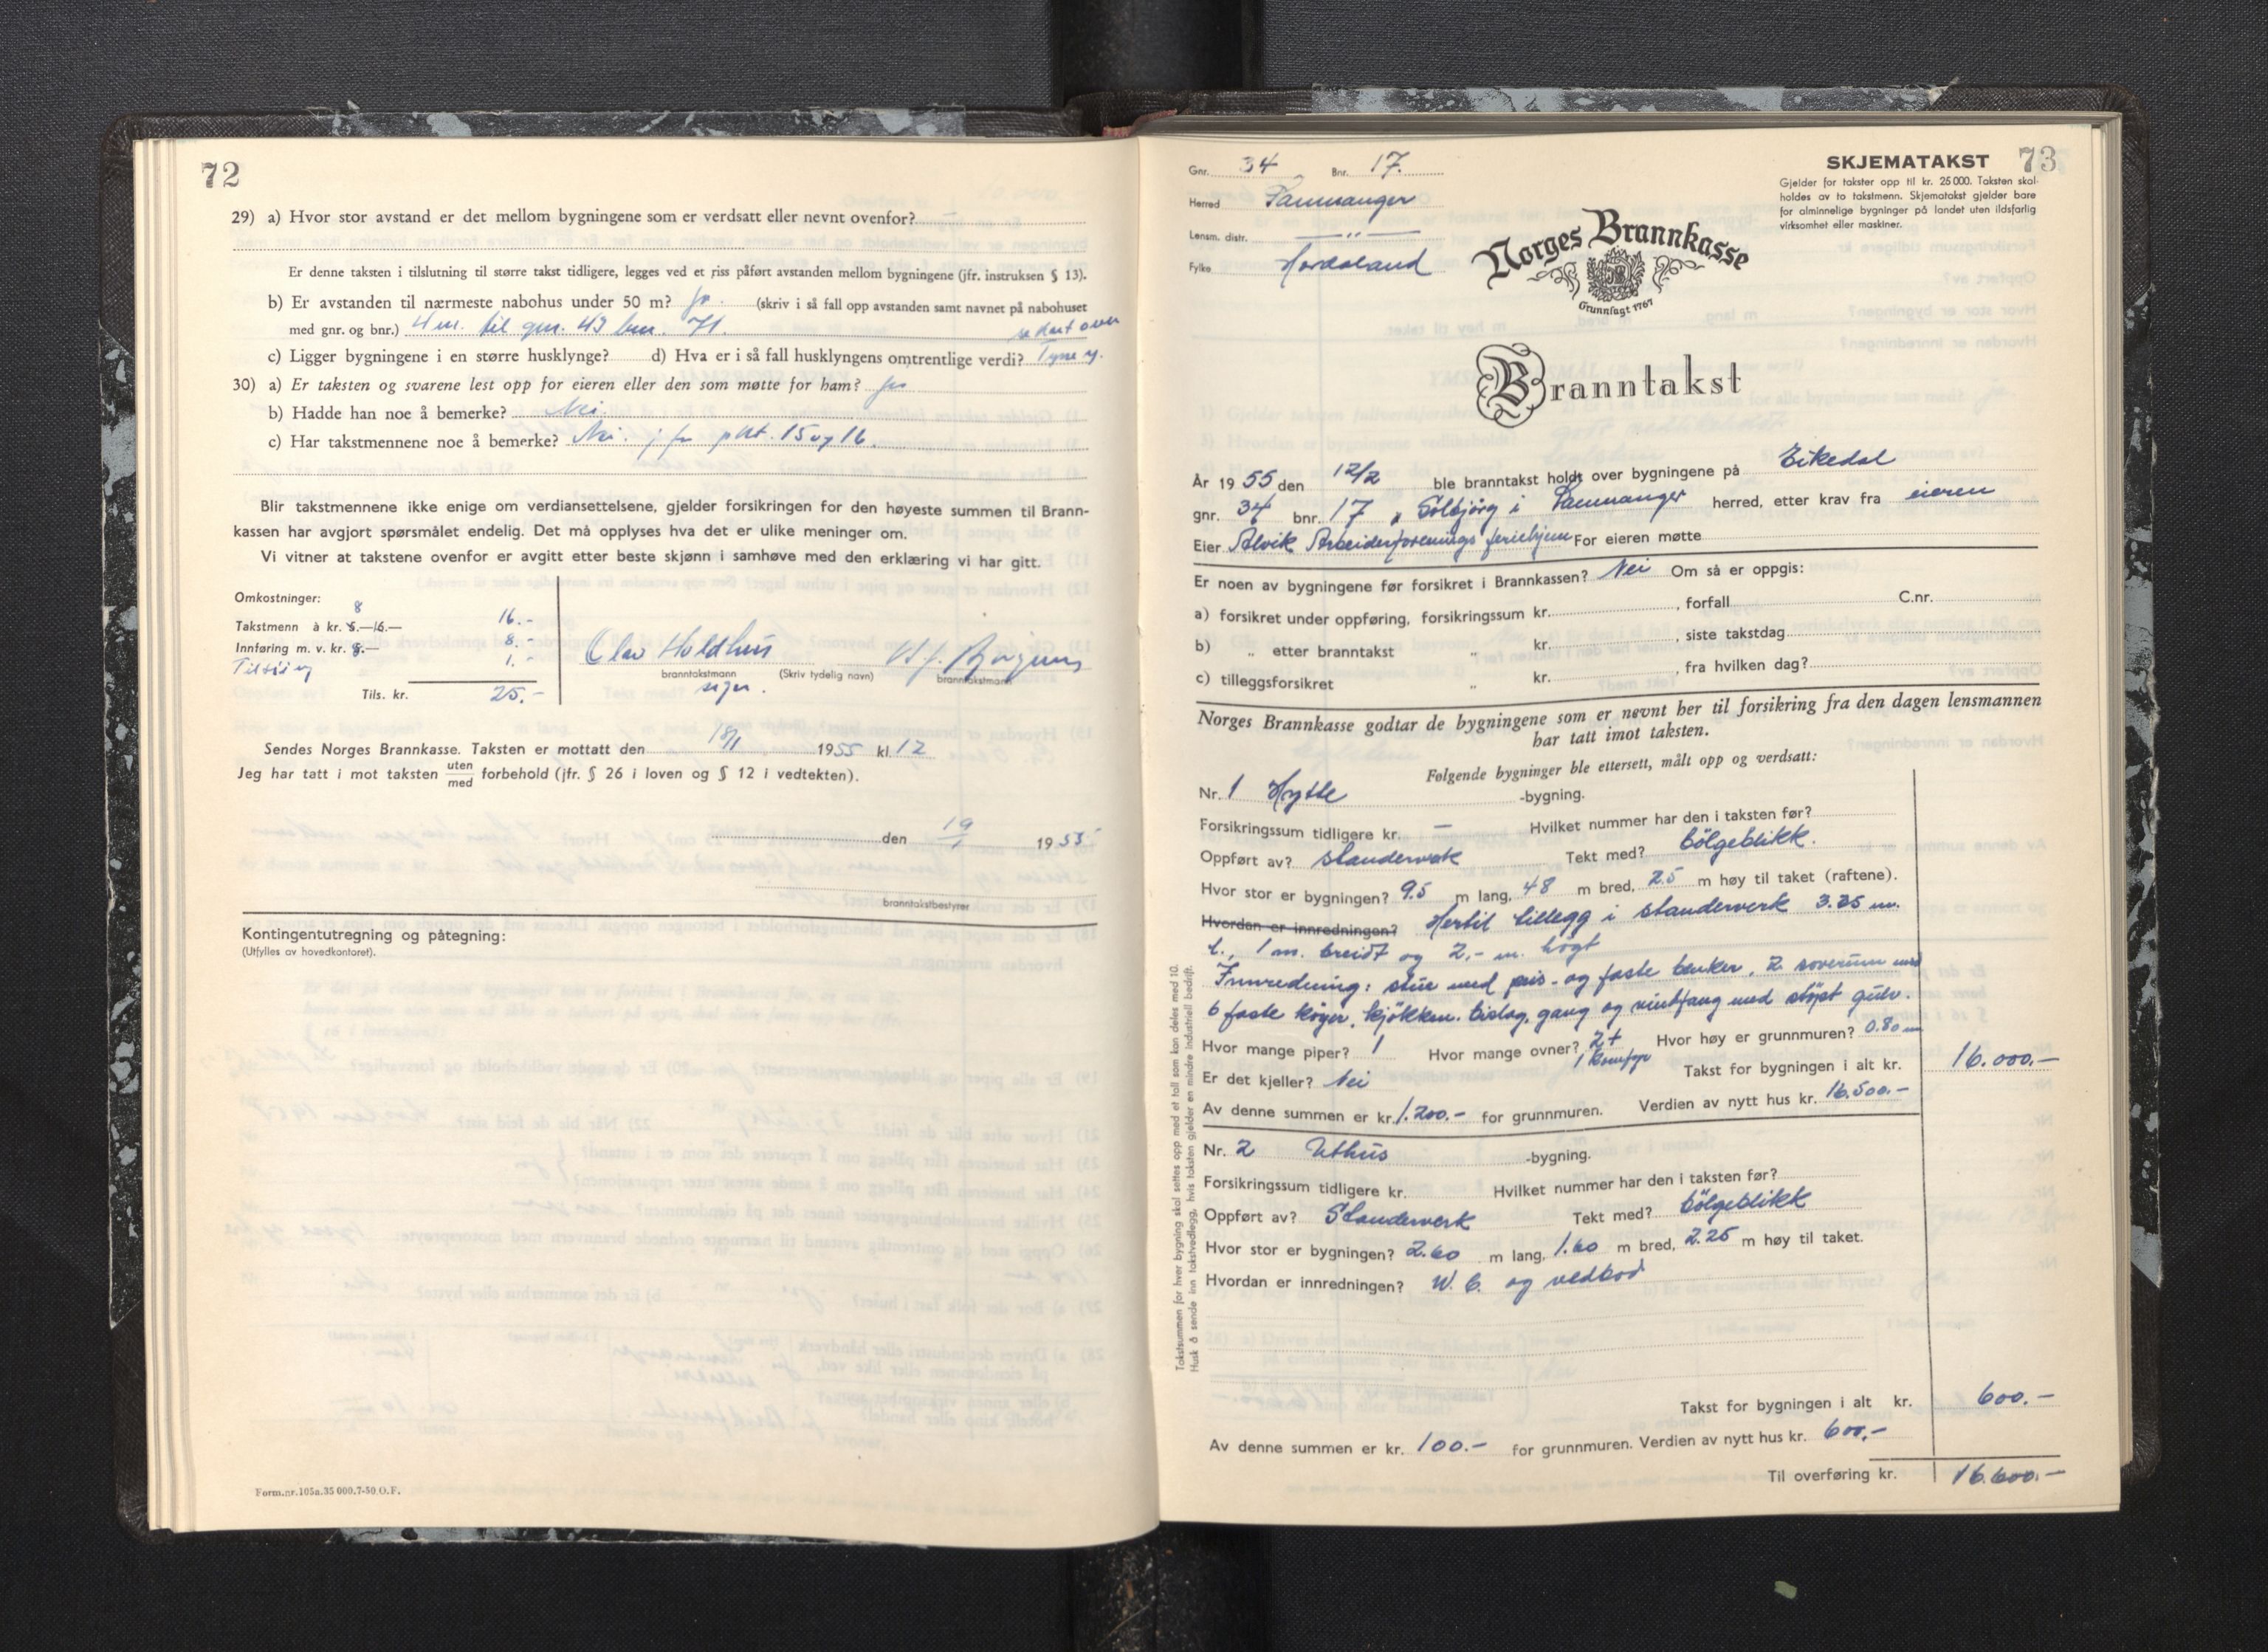 72
29) a) Hvor stor avstand er det mellom bygningene som er verdsatt eller nevnt ovenfor?
Er denne taksten i tilslutning til større takst tidligere, legges ved et riss påført avstanden mellom bygningene (jfr. instruksen § 13).
b) Er avstanden til nærmeste nabohus under 50 m? Ja. (skriv i så fall opp avstanden samt navnet på nabohuset
med gnr. og bnr.) 4 m. til gnr. 43 bnr. 71.
c) Ligger bygningene i en større husklynge? d) Hva er i så fall husklyngens omtrentlige verdi?
30) a) Er taksten og svarene lest opp for eieren eller den som møtte for ham? Ja
b) Hadde han noe å bemerke? Nei
c) Har takstmennene noe å bemerke? Nei. jfr pkt. 15 og 16.
Blir takstmennene ikke enige om verdiansettelsene, gjelder forsikringen for den høyeste summen til Brann-
kassen har avgjort spørsmålet endelig. Det må opplyses hva det er ulike meninger om.
Vi vitner at takstene ovenfor er avgitt etter beste skjønn i samhøve med den erklæring vi har gitt.
Omkostninger:
8
Takstmenn à kr. 8.—16.— 16.-
Innføring m. v. kr. 8.— 8.-
1.-
Tils. kr. 25.-
Olav Holdhus
branntakstmann (Skriv tydelig navn) branntakstmann
Sendes Norges Brannkasse. Taksten er mottatt den 18/1 1955 kl. 12
Jeg har tatt i mot taksten uten/med forbehold (jfr. § 26 i loven og § 12 i vedtekten).
den 19/1 1955
branntakstbestyrer
Kontingentutregning og påtegning:
(Utfylles av hovedkontoret).
Form.nr.105a.35 000.7-50 O.F.
Gnr. 34 Bnr. 17.
SKJEMATAKST 73
Gjelder for takster opp til kr. 25 000. Taksten skal
holdes av to takstmenn. Skjematakst gjelder bare
for alminnelige bygninger på landet uten ildsfarlig
virksomhet eller maskiner.
Herred Samnanger
Lensm. distr. — " —
Fylke Hordaland
Norges Brannkasse
Grunnlagt 1767
Branntakst
År 1955 den 12/2 ble branntakst holdt over bygningene på Eikedal
gnr. 34 bnr. 17 „ Solbjörg i Samnanger herred, etter krav fra eieren
Eier Alvik Arbeiderforenings feriehjem For eieren møtte
Er noen av bygningene før forsikret i Brannkassen? Nei Om så er oppgis:
a) forsikret under oppføring, forsikringssum kr. , forfall C.nr.
b) „ etter branntakst „ kr. , siste takstdag
c) tilleggsforsikret „ kr. , fra hvilken dag?
Norges Brannkasse godtar de bygningene som er nevnt her til forsikring fra den dagen lensmannen
har tatt imot taksten.
Følgende bygninger ble ettersett, målt opp og verdsatt:
Nr. 1 Hytte -bygning.
Forsikringssum tidligere kr. — Hvilket nummer har den i taksten før?
Oppført av? standerverk Tekt med? bölgeblikk.
Hvor stor er bygningen? 9.5 m lang, 48 m bred, 2.5 m høy til taket (raftene).
Hvordan er innredningen? Hertil tillegg i standerverk 3.25 m.
l., 1 m. breidt og 2,- m. högt
Innredning: stue med peis- og faste benker, 2 soverum med
6 faste köyer, kjökken. bislag, gang og vindfang med støpt gulv.
Hvor mange piper? 1 Hvor mange ovner? 2+ 1 komfyr Hvor høy er grunnmuren? 0.80 m
Er det kjeller? Nei Takst for bygningen i alt kr. 16.000.—
Av denne summen er kr. 1.200.- for grunnmuren. Verdien av nytt hus kr. 16.500.-
Nr. 2 Uthus -bygning.
Forsikringssum tidligere kr. Hvilket nummer har den i taksten før?
Oppført av? Standerverk Tekt med? bölgeblikk
Hvor stor er bygningen? 2.60 m lang, 1.60 m bred, 2.25 m høy til taket.
Hvordan er innredningen? W. C. og vedbod
Takst for bygningen i alt kr. 600.—
Av denne summen er kr. 100.- for grunnmuren. Verdien av nytt hus kr. 600,-
Til overføring kr. 16.600.—
Takstsummen for hver bygning skal settes opp med et tall som kan deles med 10.
Husk å sende inn takstvedlegg, hvis taksten gjelder en mindre industriell bedrift.